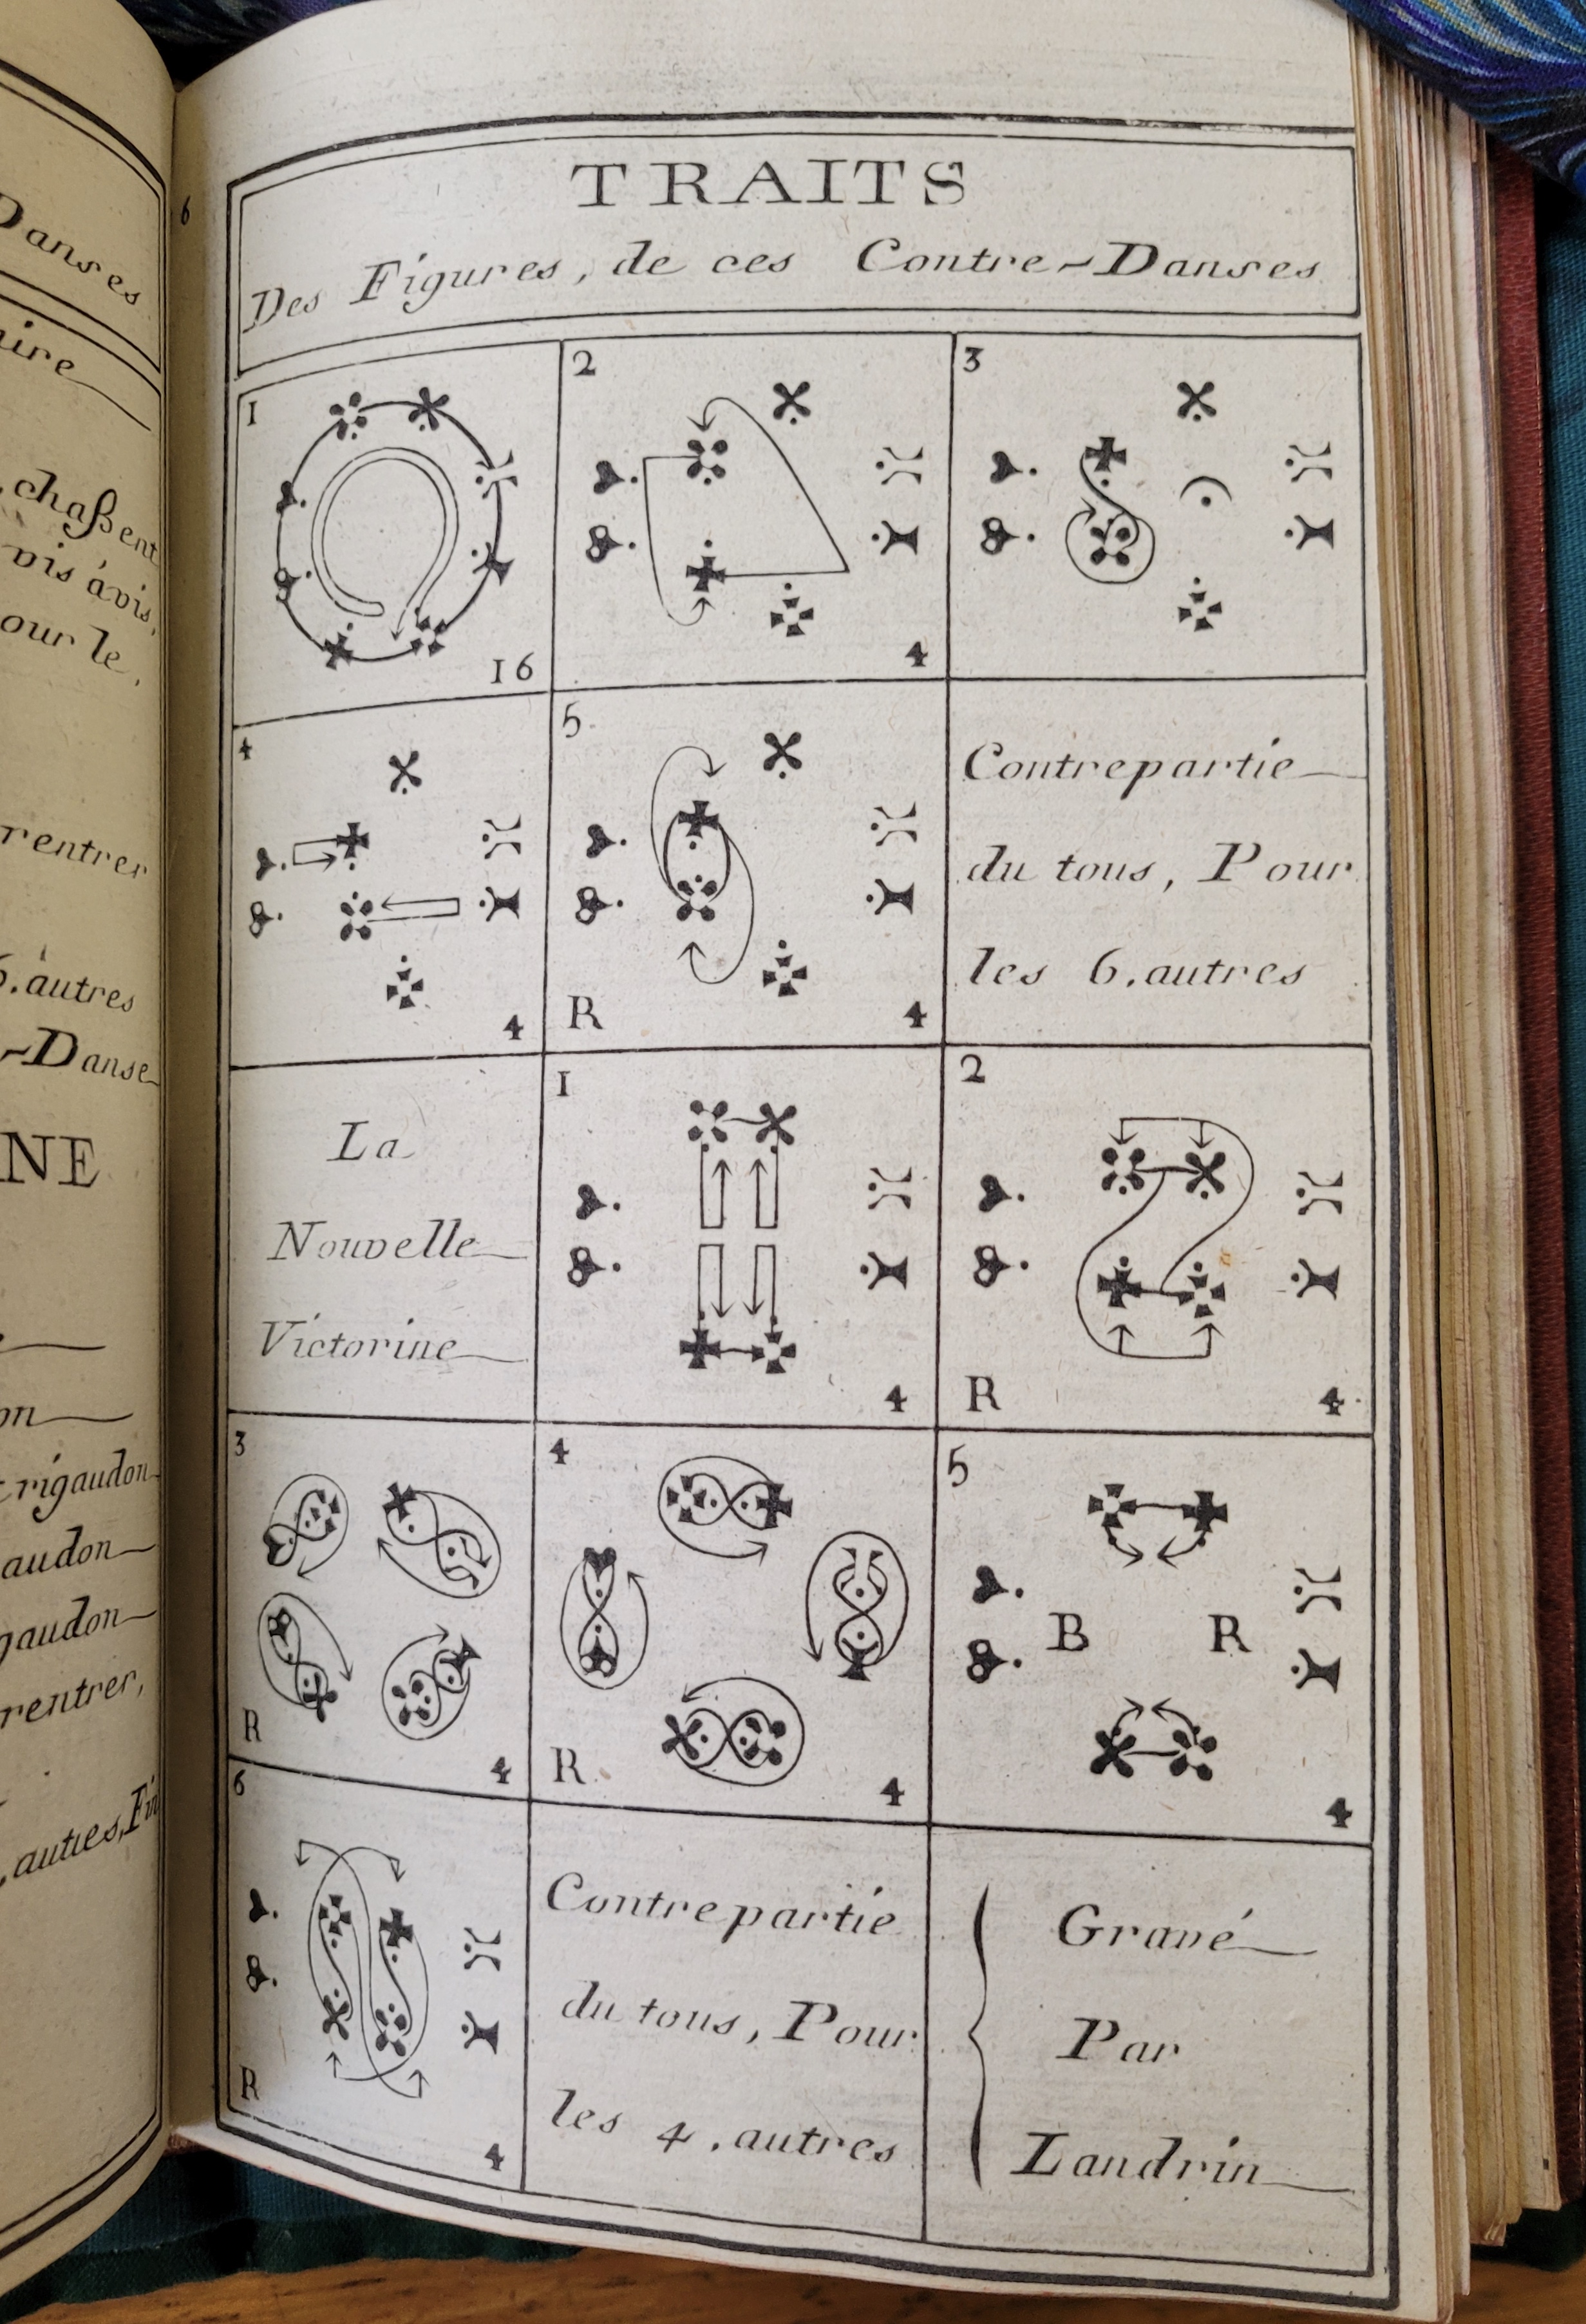 Danses
chaßent
vis àvis,
our le
rentrer
6. autres
-Danse
NE
rigaudon
audon
gaudon
rentrer,
autres, Fin
6
TRAITS
Des Figures, de ces Contre-Danses
1
16
2
4
3
4
4
5
R
4
Contrepartie
du tous, Pour
les 6. autres
La
Nouvelle
Victorine
1
4
2
R
4
3
R
4
4
R
4
5
B R
4
6
R
4
Contrepartie
du tous, Pour
les 4. autres
Gravé
Par
Landrin